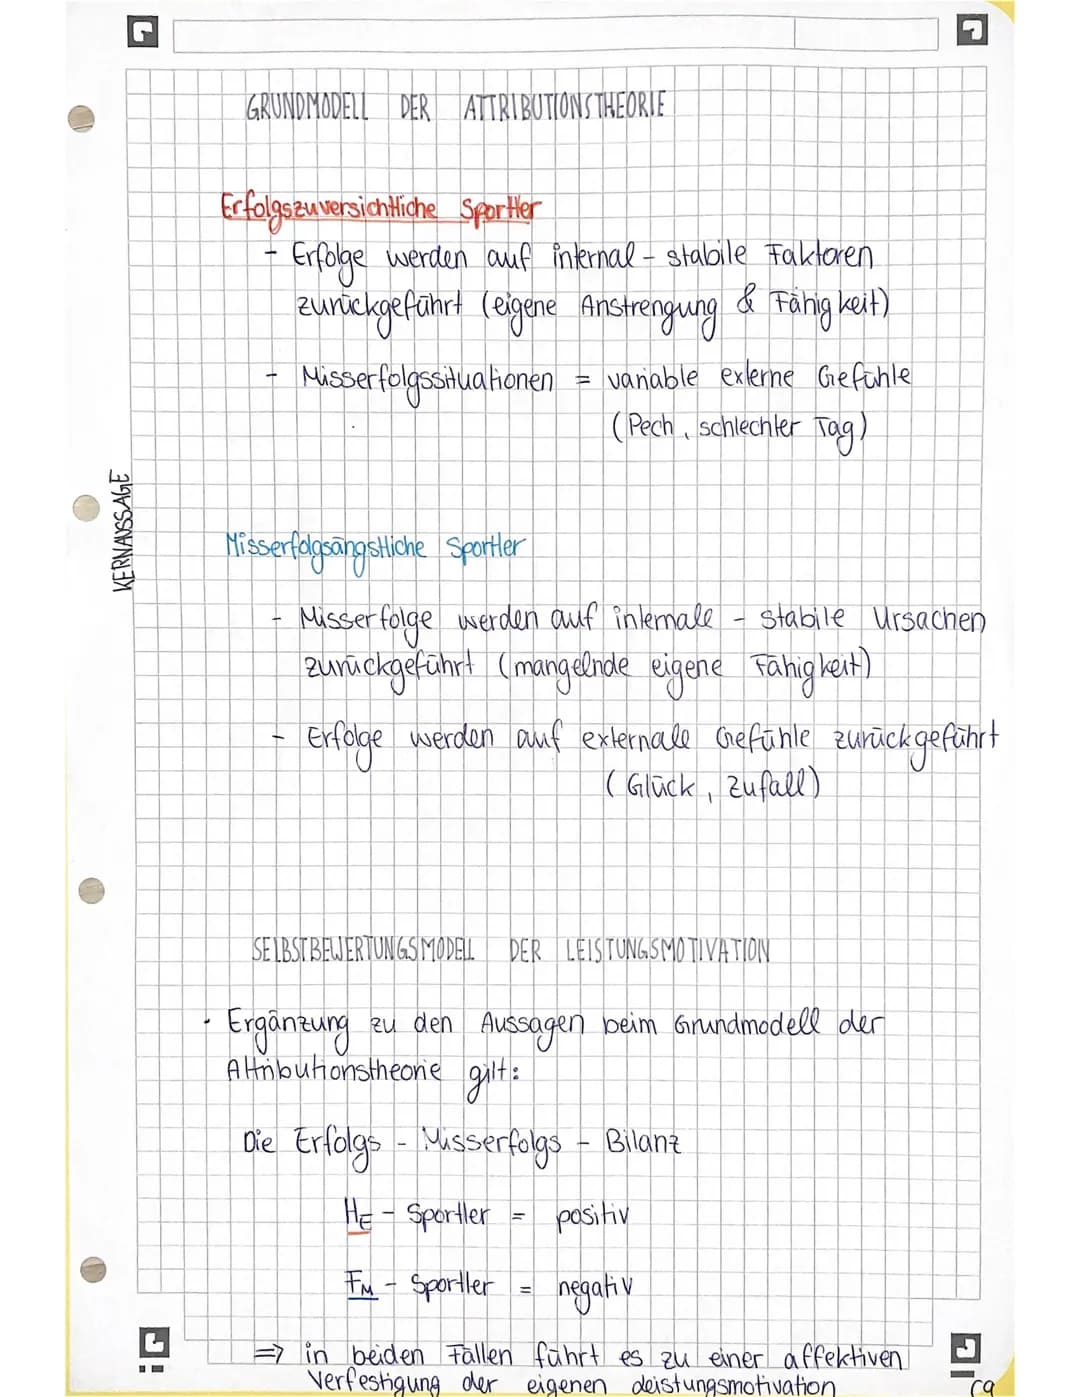 GRUNDMODELL DER ATTRIBUTIONSTHEORIE
Erfolgszuversichtliche Sportler
- Erfolge werden auf internal - stabile Faktoren
zurückgeführt (eigene Anstrengung & Fähigkeit)
- Misserfolgssituationen = variable externe Gefühle
(Pech, schlechter Tag)
KERNAUSSAGE
Misserfolgsängstliche Sportler
- Misserfolge werden auf internale - stabile Ursachen
zurückgeführt (mangelnde eigene Fähigkeit)
- Erfolge werden auf externale Gefühle zurückgeführt
(Glück, Zufall)
SELBSTBEWERTUNGSMODELL DER LEISTUNGSMOTIVATION
· Ergänzung zu den Aussagen beim Grundmodell der
Attributionstheorie gilt:
Die Erfolgs - Misserfolgs - Bilanz
HE - Sportler = positiv
FM - Sportler = negativ
=> in beiden Fällen führt es zu einer affektiven
Verfestigung der eigenen Leistungsmotivation